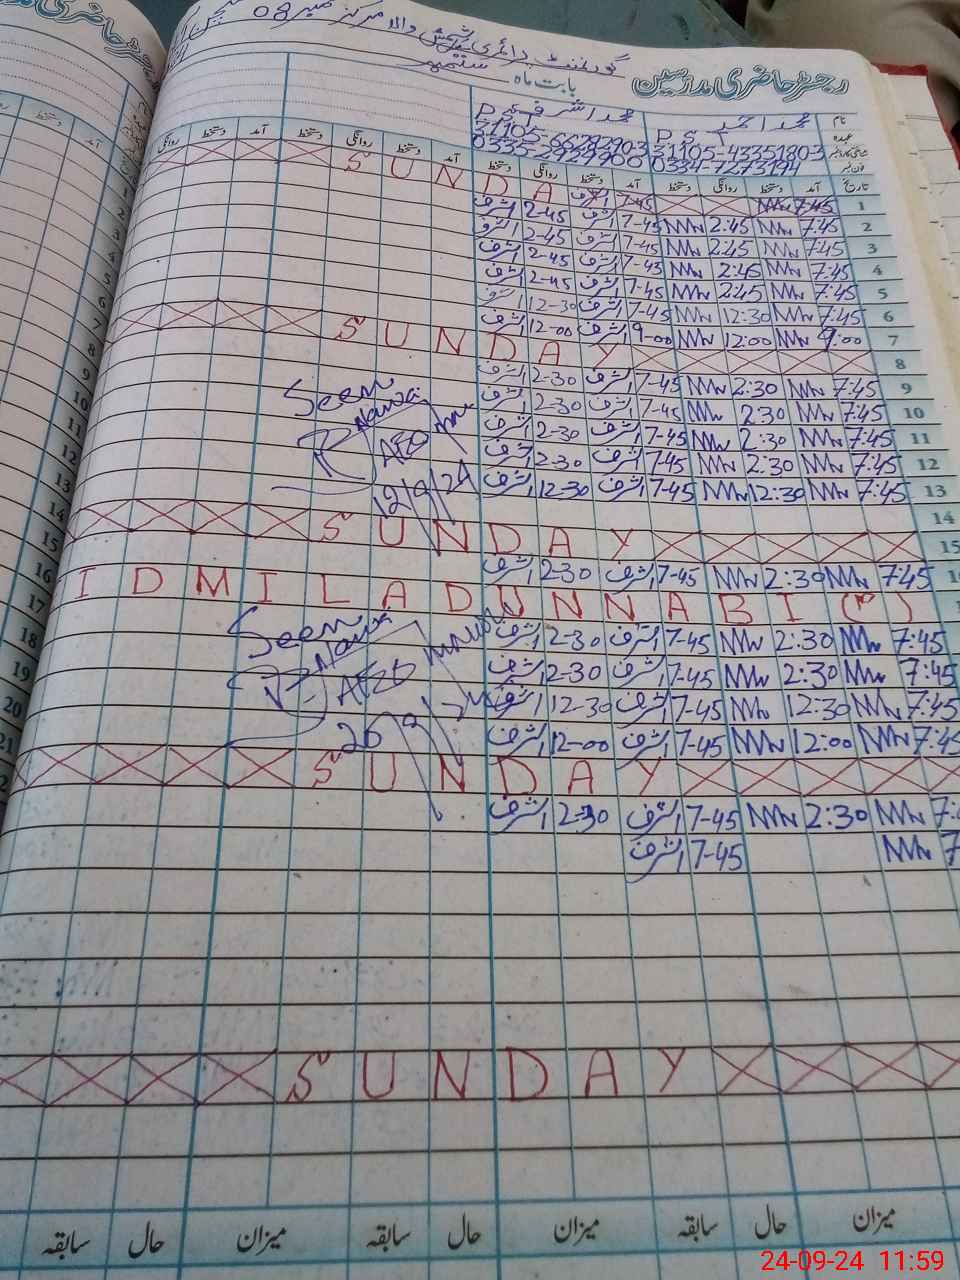 رجسٹر حاضری مدرسین
بابت ماہ ستمبر
گورنمنٹ پرائمری سکول مرکز نمبر 08
نام محمد احمد محمد اشرف
عہدہ
31105-4335180-3
فون نمبر 0334-7273194 0335-7929900
تاریخ آمد دستخط روانگی دستخط آمد دستخط روانگی دستخط آمد دستخط روانگی دستخط آمد دستخط روانگی
1 SUNDAY 7:45 7-45
2 7:45 2:45 7-45 اشرف 2-45 اشرف
3 7:45 2:45 7-45 اشرف 2-45 اشرف
4 7:45 2:45 7-45 اشرف 2-45 اشرف
5 7:45 2:45 7-45 اشرف 2-45 اشرف
6 7:45 12:30 7-45 اشرف 12-30 اشرف
7 9:00 12:00 9-00 اشرف 12-00 اشرف
8 SUNDAY
9 7:45 2:30 7-45 اشرف 2-30 اشرف
10 7:45 2:30 7-45 اشرف 2-30 اشرف
11 7:45 2:30 7-45 اشرف 2-30 اشرف
12 7:45 2:30 7-45 اشرف 2-30 اشرف
13 7:45 12:30 7-45 اشرف 12-30 اشرف
Seen
AEO
12/9/24
14
15 SUNDAY
16 7:45 2:30 7-45 اشرف 2-30 اشرف
17 IDMILADUNNABI (م)
18 7:45 2:30 7-45 اشرف 2-30 اشرف
19 7:45 2:30 7-45 اشرف 2-30 اشرف
20 7:45 12:30 7-45 اشرف 12-30 اشرف
21 7:45 12:00 7-45 اشرف 12-00 اشرف
Seen
AEO
SUNDAY
2:30 7-45 اشرف 2-30 اشرف
7-45 اشرف
SUNDAY
میزان حال سابقہ میزان حال سابقہ میزان حال سابقہ
24-09-24 11:59